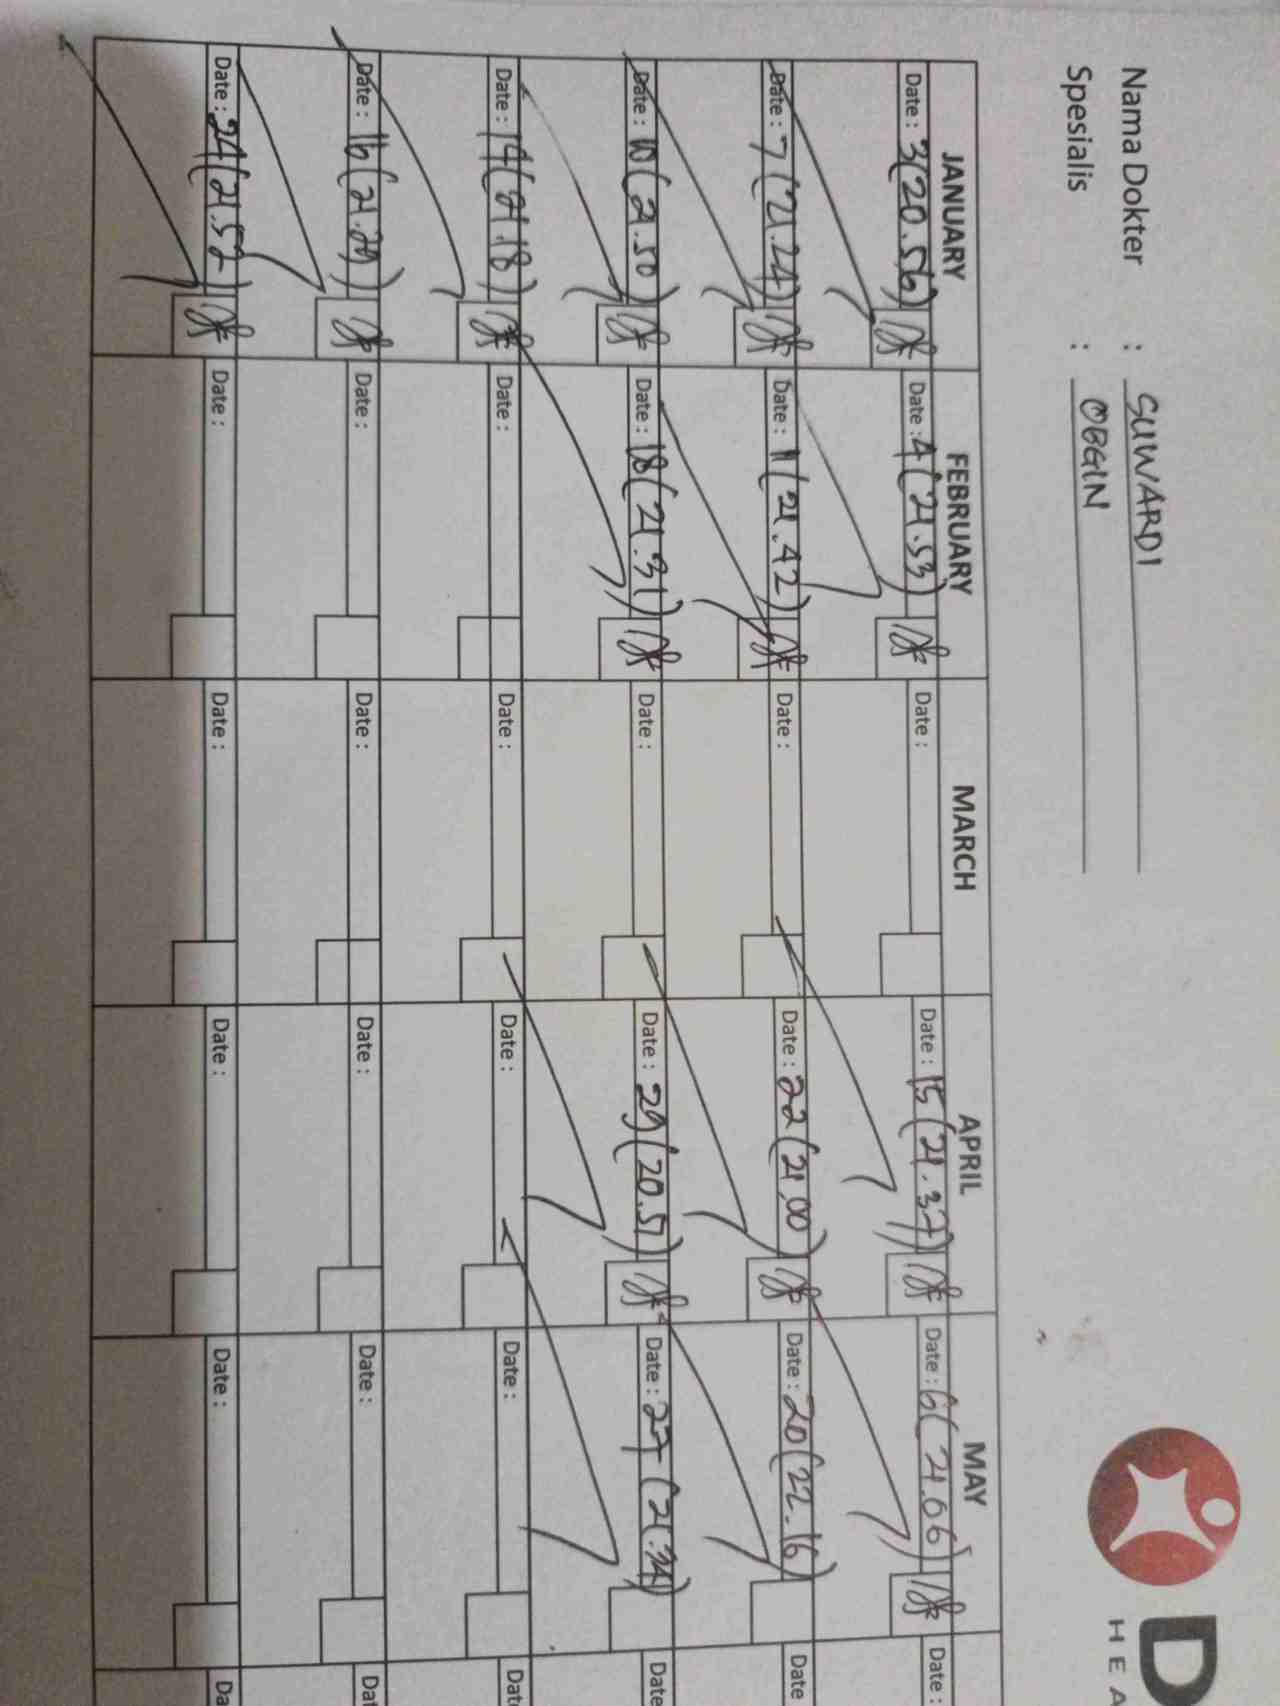 Nama Dokter : SUWARDI
Spesialis : OBGIN
D
HEA
JANUARY FEBRUARY MARCH APRIL MAY
Date : 3(20.56) Date : 4(21.53) Date : Date : 15(21.37) Date : 6(21.06) Date :
Date : 7(21.24) Date : 11(21.42) Date : Date : 22(21.00) Date : 20(22.16) Date
Date : 10(21.50) Date : 18(21.31) Date : Date : 29(20.51) Date : 27(21.34) Date
Date : 14(21.18) Date : Date : Date : Date : Date
Date : 16(21.29) Date : Date : Date : Date : Dat
Date : 24(21.52) Date : Date : Date : Date : Da